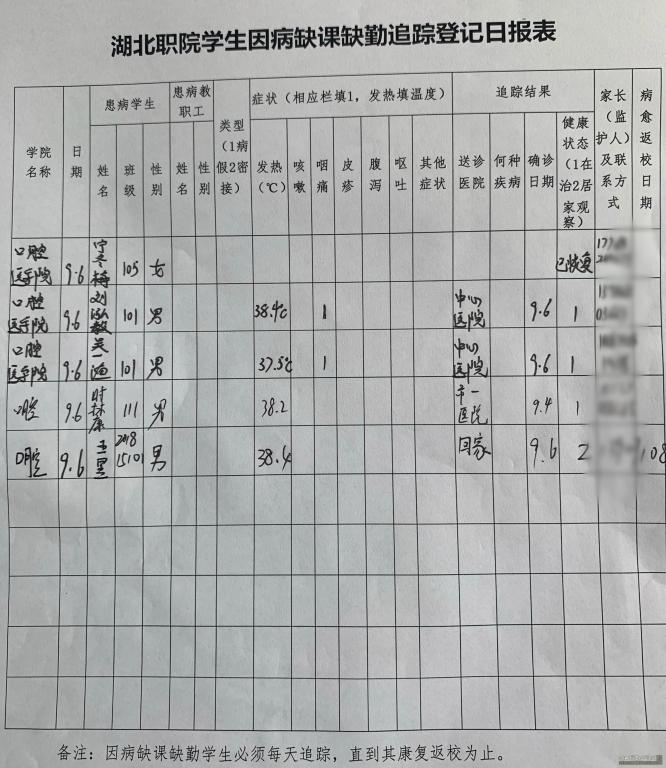 湖北职院学生因病缺课缺勤追踪登记日报表
学院名称 日期 患病学生 患病教职工 类型(1病假2密接) 症状(相应栏填1,发热填温度) 追踪结果 家长(监护人)及联系方式 病愈返校日期
姓名 班级 性别 姓名 性别 发热(℃) 咳嗽 咽痛 皮疹 腹泻 呕吐 其他症状 送诊医院 何种疾病 确诊日期 健康状态(1在治2居家观察)
口腔医学院 9.6 105 女 已恢复
口腔医学院 9.6 101 男 38.4℃ 1 中心医院 9.6 1
口腔医学院 9.6 101 男 37.5℃ 1 中心医院 9.6 1
口腔 9.6 111 男 38.2 市一医院 9.4 1
口腔 9.6 男 38.4 回家 9.6 2
备注:因病缺课缺勤学生必须每天追踪,直到其康复返校为止。